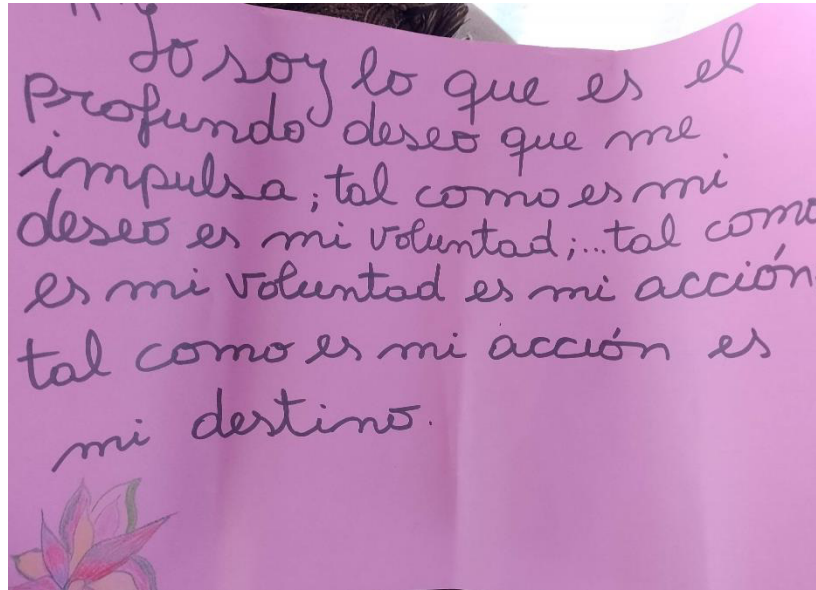 Yo soy lo que es el
profundo deseo que me
impulsa; tal como es mi
deseo es mi voluntad;...tal como
es mi voluntad es mi acción
tal como es mi acción es
mi destino.